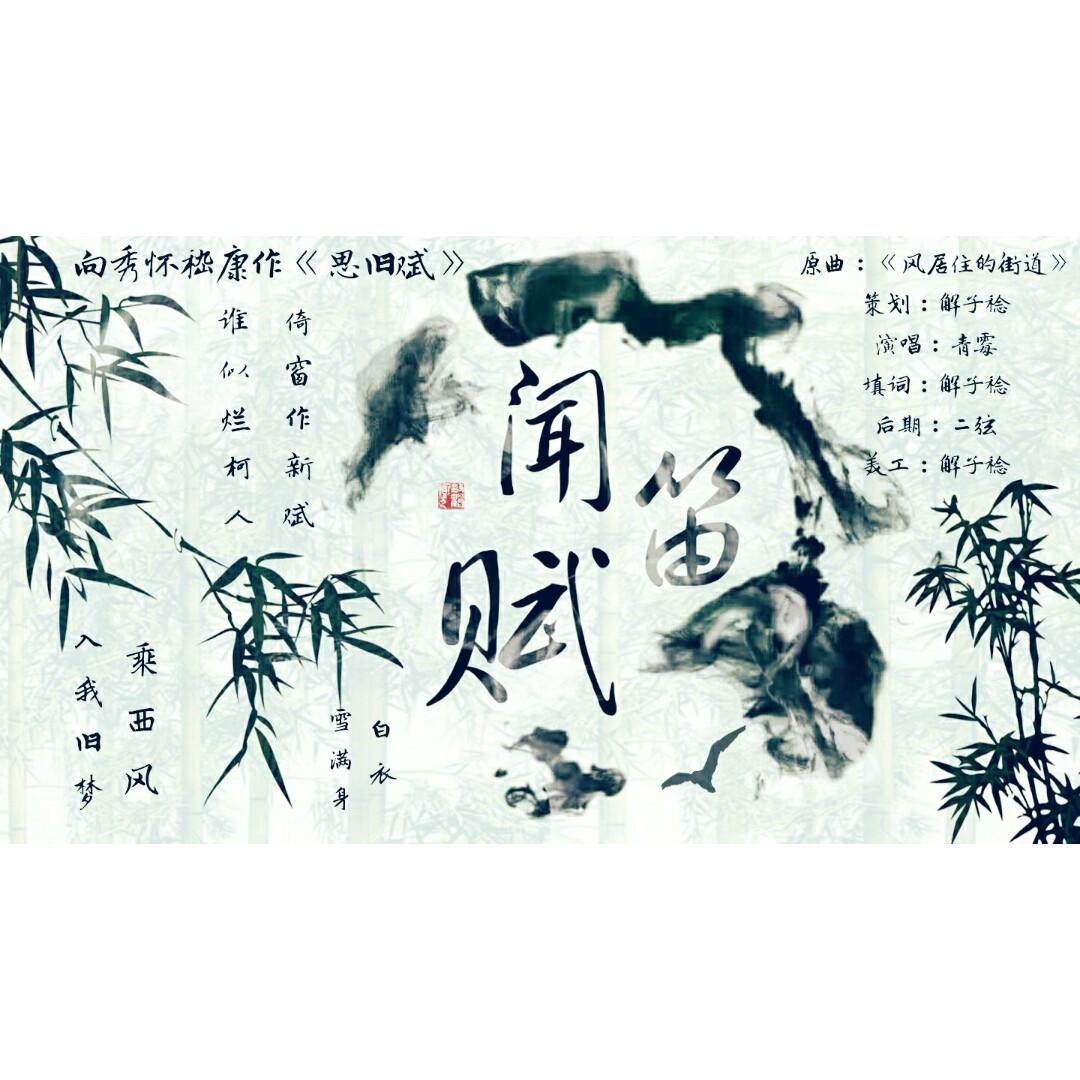 向秀怀嵇康作《思旧赋》
倚窗作新赋
谁似烂柯人
白衣
雪满身
乘西风
入我旧梦
闻笛赋
原曲：《风居住的街道》
策划：解子稔
演唱：青霙
填词：解子稔
后期：二弦
美工：解子稔